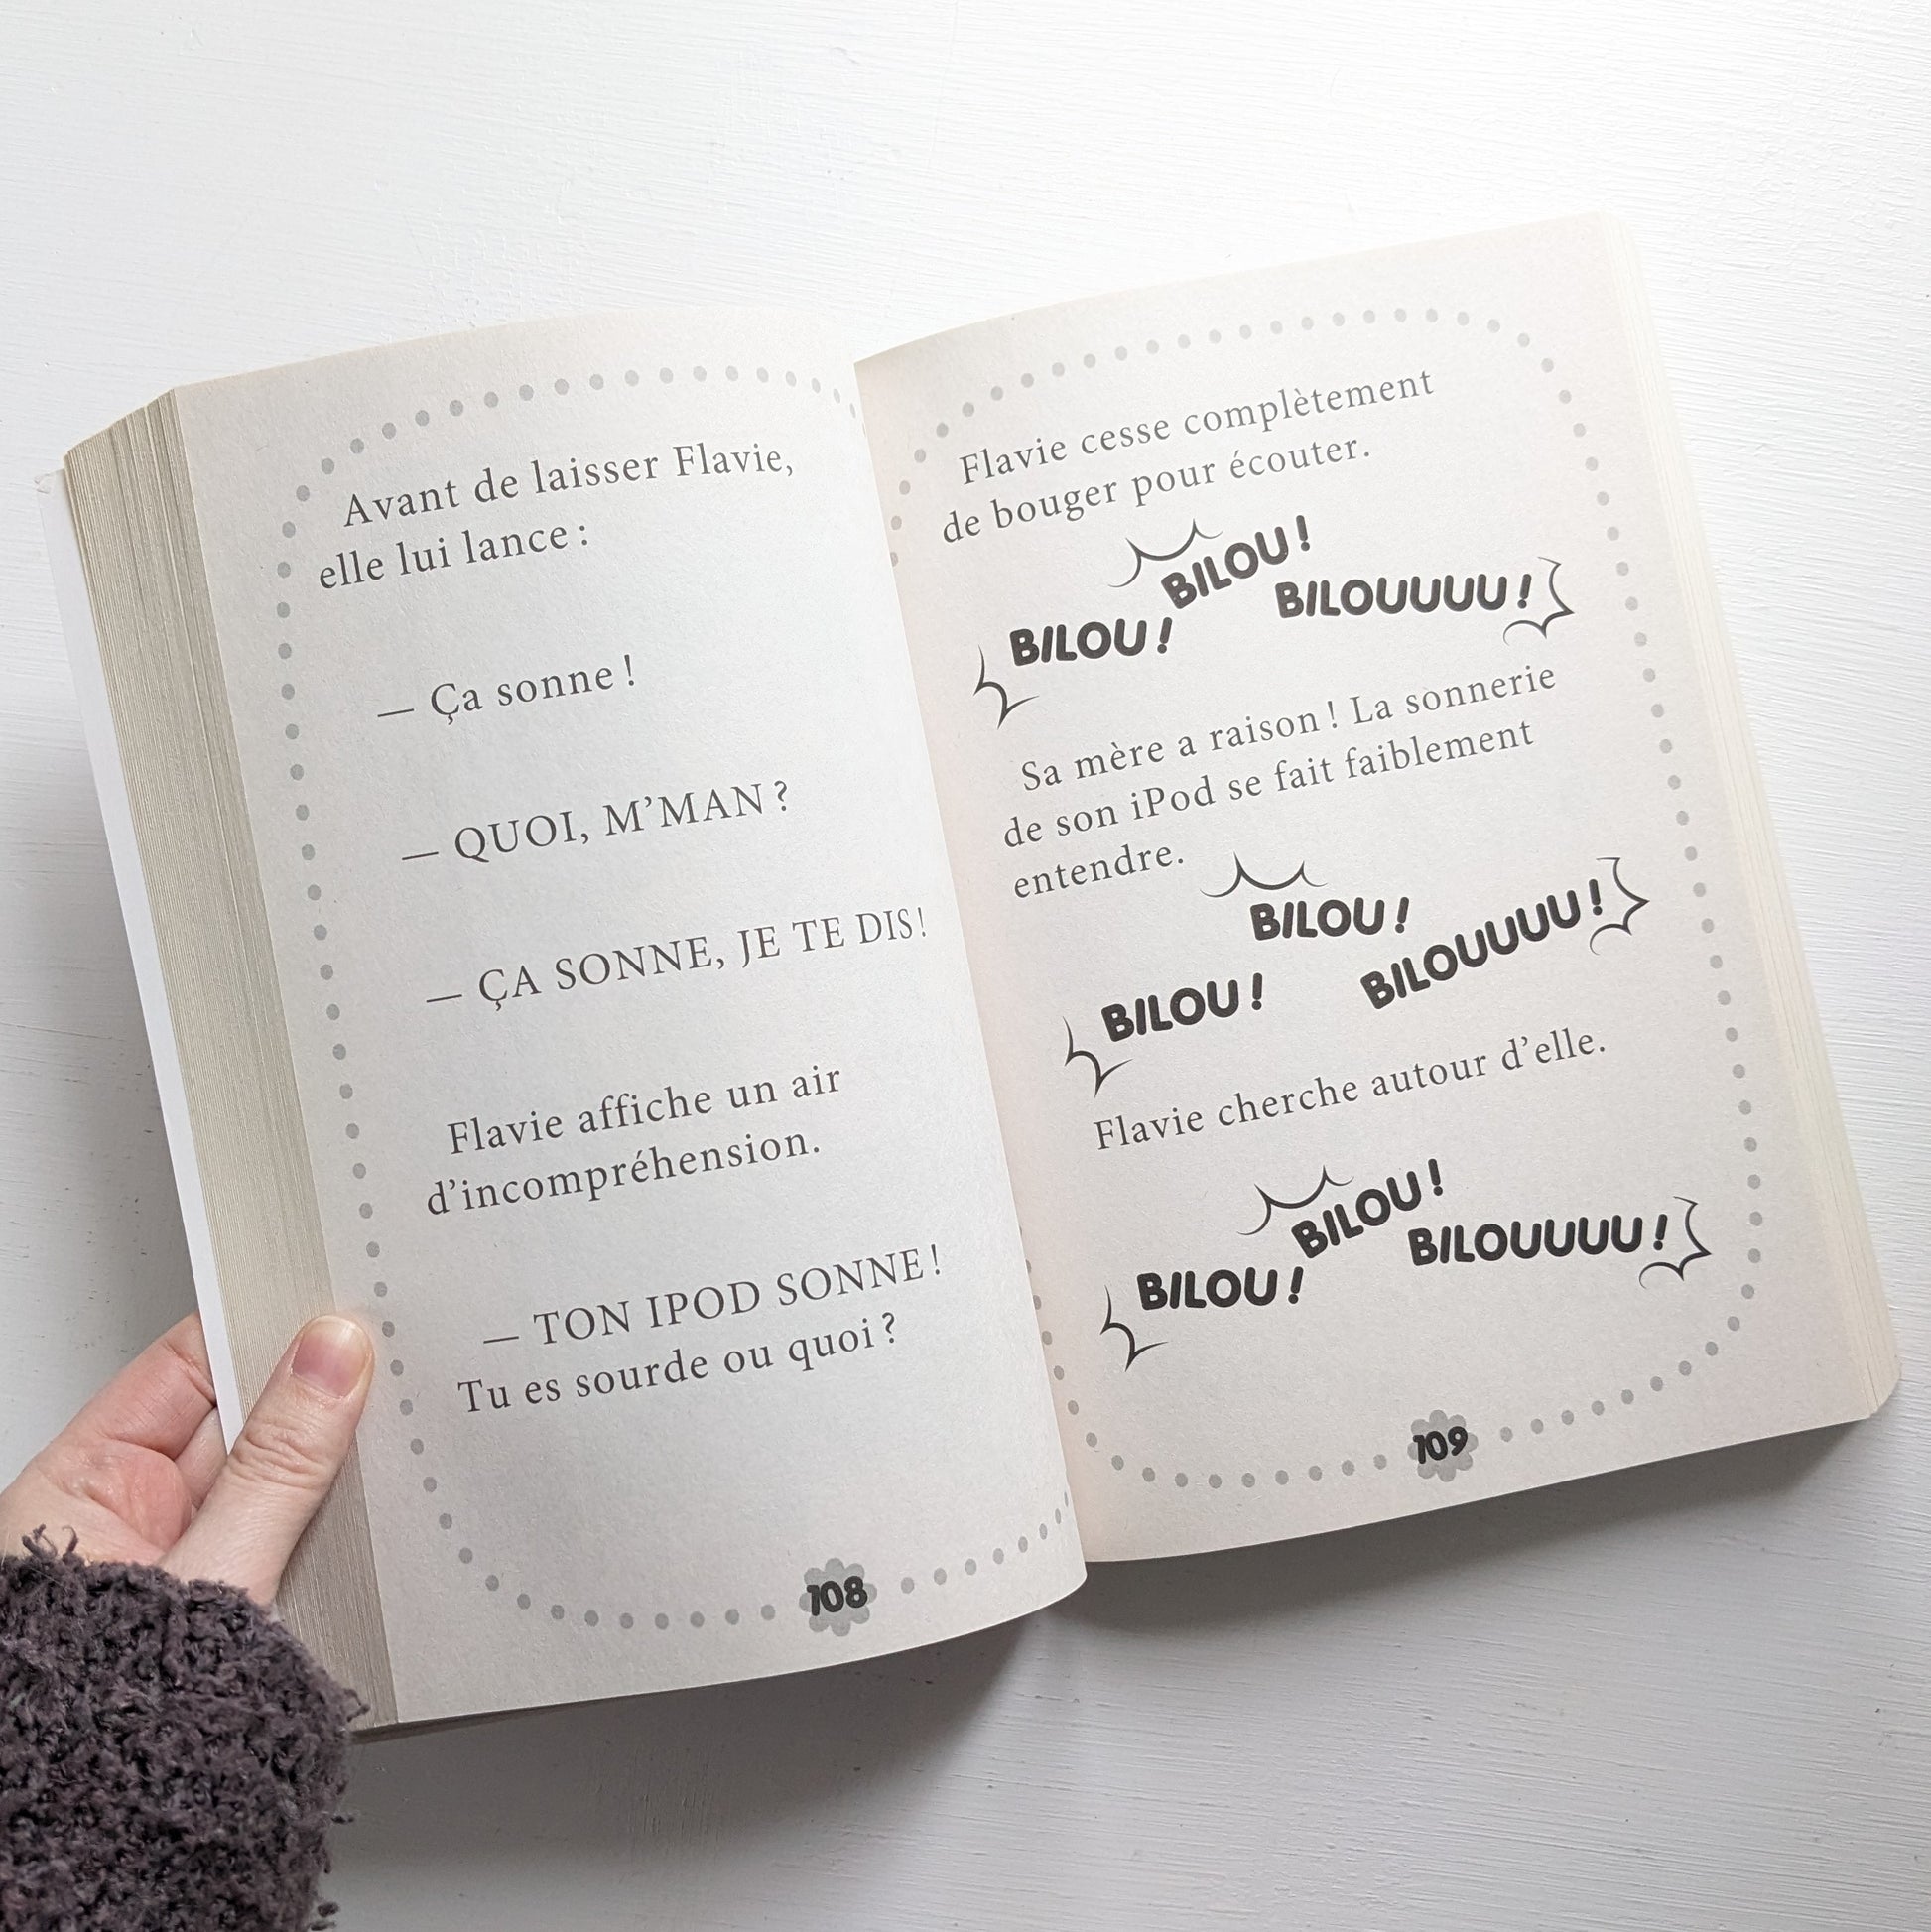 Avant de laisser Flavie,
elle lui lance :
— Ça sonne !
— QUOI, M’MAN ?
— ÇA SONNE, JE TE DIS !
Flavie affiche un air
d’incompréhension.
— TON IPOD SONNE !
Tu es sourde ou quoi ?
108
Flavie cesse complètement
de bouger pour écouter.
BILOU !
BILOU !
BILOUUUU !
Sa mère a raison ! La sonnerie
de son iPod se fait faiblement
entendre.
BILOU !
BILOU !
BILOUUUU !
Flavie cherche autour d’elle.
BILOU !
BILOU !
BILOUUUU !
109